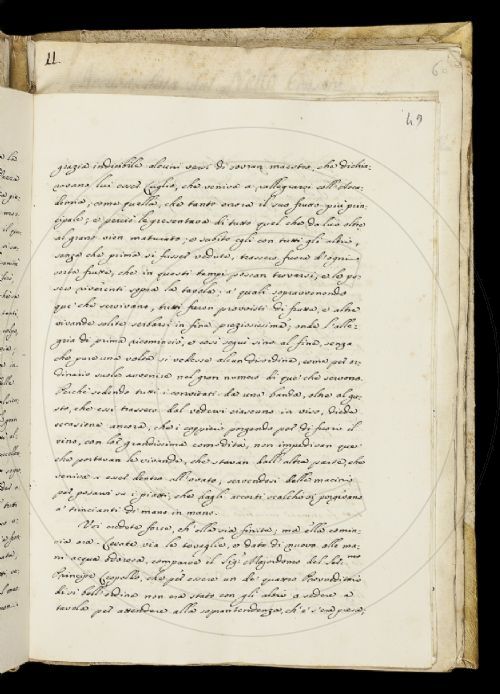 11.
6
49
grazia indicibile alcuni versi di sovran maestro, che dichia-
ravano lui esser Luglio, che veniva a rallegrarsi coll' Acca-
demia, come quella, che tanto onora il suo frutto più prin-
cipale; e perciò le presentava di tutto quel che da lui oltre
al grano vien maturato; e subito egli con tutti gli altri,
senza che prima si fusser vedute, trassero fuora d'ogni
sorta frutte, che in questi tempi possan trovarsi, e le po-
sero vivienti sopra la tavola: a' quali sopravvenendo
que' che servivano, tutti furon provvisti di frutte, e altre
vivande solite serbarsi in fine, preziosissime; onde l'alle-
gria di prima ricominciò, e così seguì sino al fine, senza
che pure una volta si vedesse alcun disordine, come per or-
dinario suole avvenire nel gran numero di que' che servono.
Perchè sedendo tutti i convitati da una banda, oltre al gu-
sto, che essi trassero dal vedersi ciascuno in viso, diede
occasione ancora, che i coppieri porgendo per di fuori il
vino, con lor grandissima comodità, non impedivan que'
che portavan le vivande, che stavan dall' altra parte, che
veniva a esser dentro all'ovato, servendosi delle macine
per posarvi su i piatti, che dagli accorti scalchi si porgevano
a' trincianti di mano in mano.
Voi credete forse, ch'ella sia finita; ma ella comin-
cia ora. Levate via le tovaglie, e dato di nuovo alle ma-
ni acqua odorosa, comparve il Sig.r Majordomo del Ser.mo
Principe Leopoldo, che per essere un de' quattro Provveditori
di sì bell' ordine non era stato con gli altri a sedere a
tavola per attendere alla soprantendenza, ch' e' s'era presa: